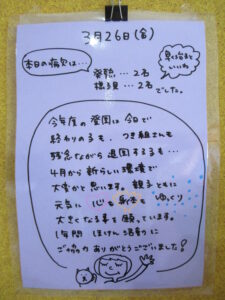 3月26日(金)
本日の病欠は…
早く治ると
いいね
発熱…2名
様子見…2名
でした。
今年度の登園は今日で
終わりの子も、つき組さんも
残念ながら退園する子も…
4月から新らしい環境で
大変かと思います。親子ともに
元気に 心も 身体も ゆっくり
大きくなる事を願っています。
1年間 ほけん活動に
ご協力ありがとうございました!